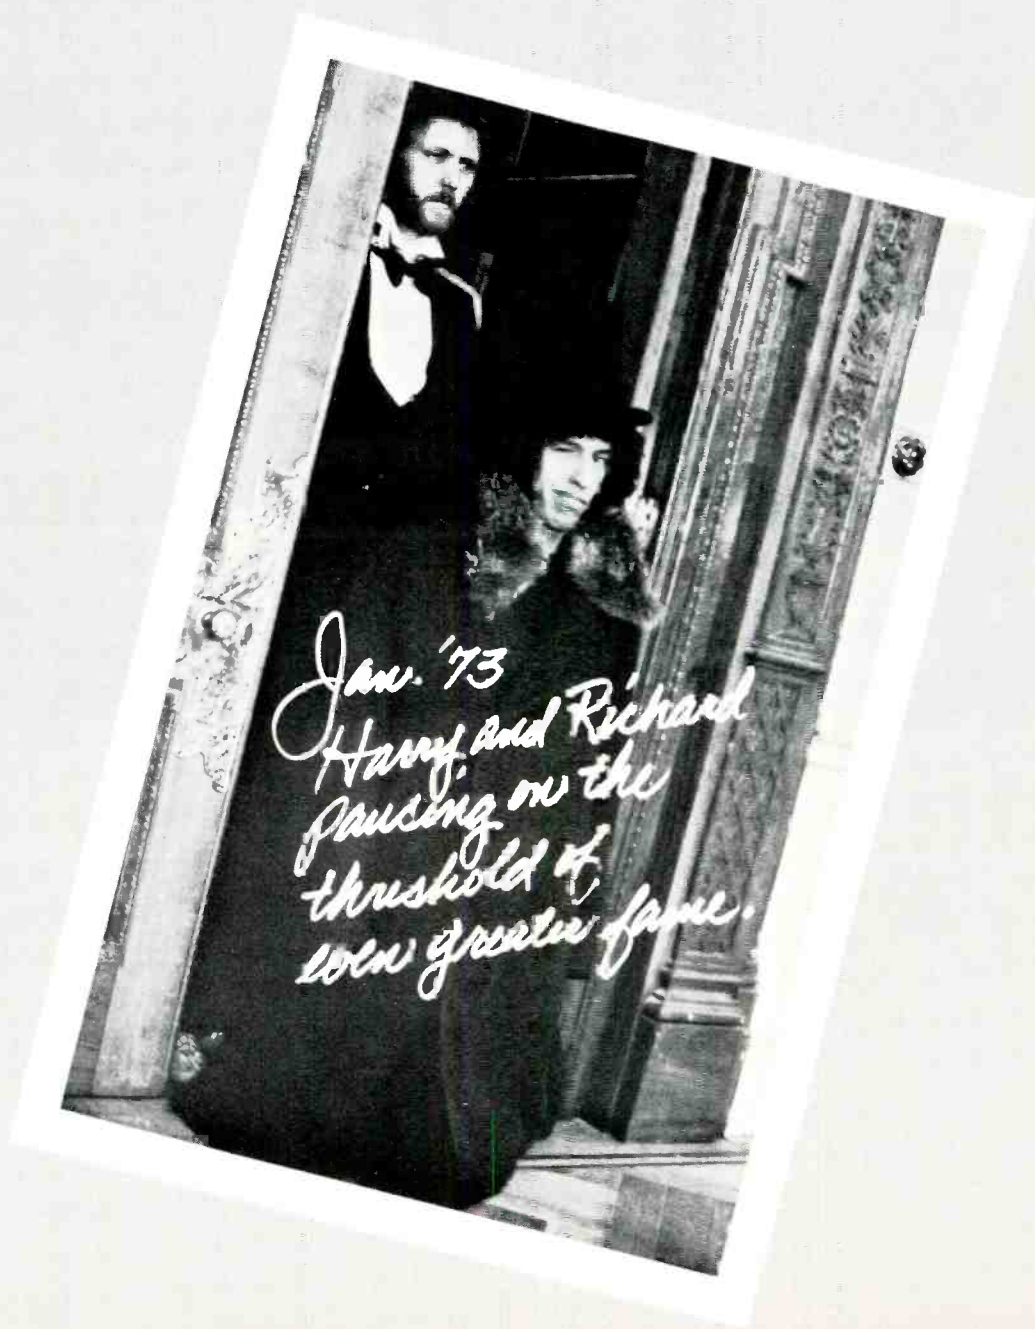 Jan. '73
Harry and Richard
pausing on the
threshold of
even greater fame.